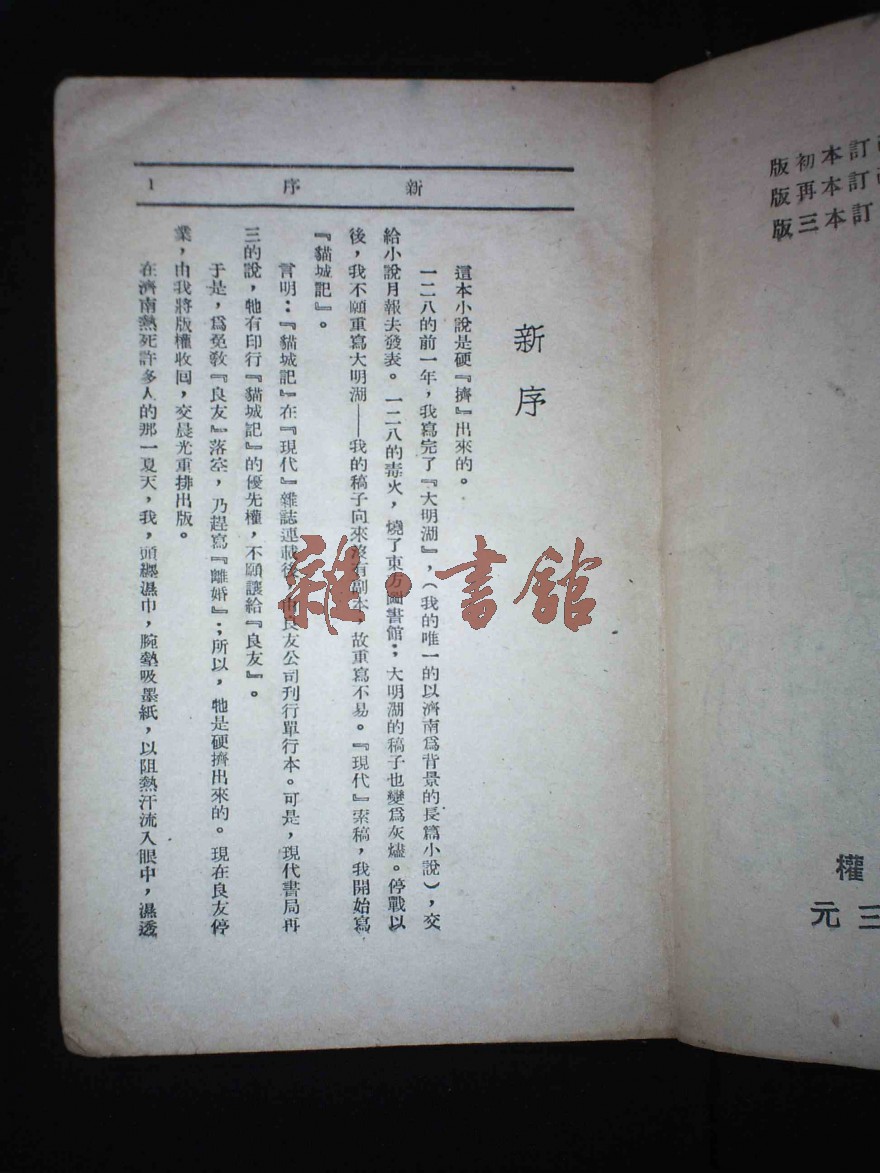 改訂本初版
改訂本再版
訂本三版
權
三元
新 序 1
新序
這本小說是硬『擠』出來的。
一二八的前一年，我寫完了『大明湖』，（我的唯一的以濟南爲背景的長篇小說），交
給小說月報去發表。一二八的毒火，燒了東方圖書館；大明湖的稿子也變爲灰燼。停戰以
後，我不願重寫大明湖——我的稿子向來沒有副本，故重寫不易。『現代』索稿，我開始寫
『貓城記』。
言明：『貓城記』在『現代』雜誌連載後，由良友公司刊行單行本。可是，現代書局再
三的說，牠有印行『貓城記』的優先權，不願讓給『良友』。
于是，爲免敎『良友』落空，乃趕寫『離婚』；所以，牠是硬擠出來的。現在良友停
業，由我將版權收回，交晨光重排出版。
在濟南熱死許多人的那一夏天，我，頭纏濕巾，腕墊吸墨紙，以阻熱汗流入眼中，濕透
雜·書館